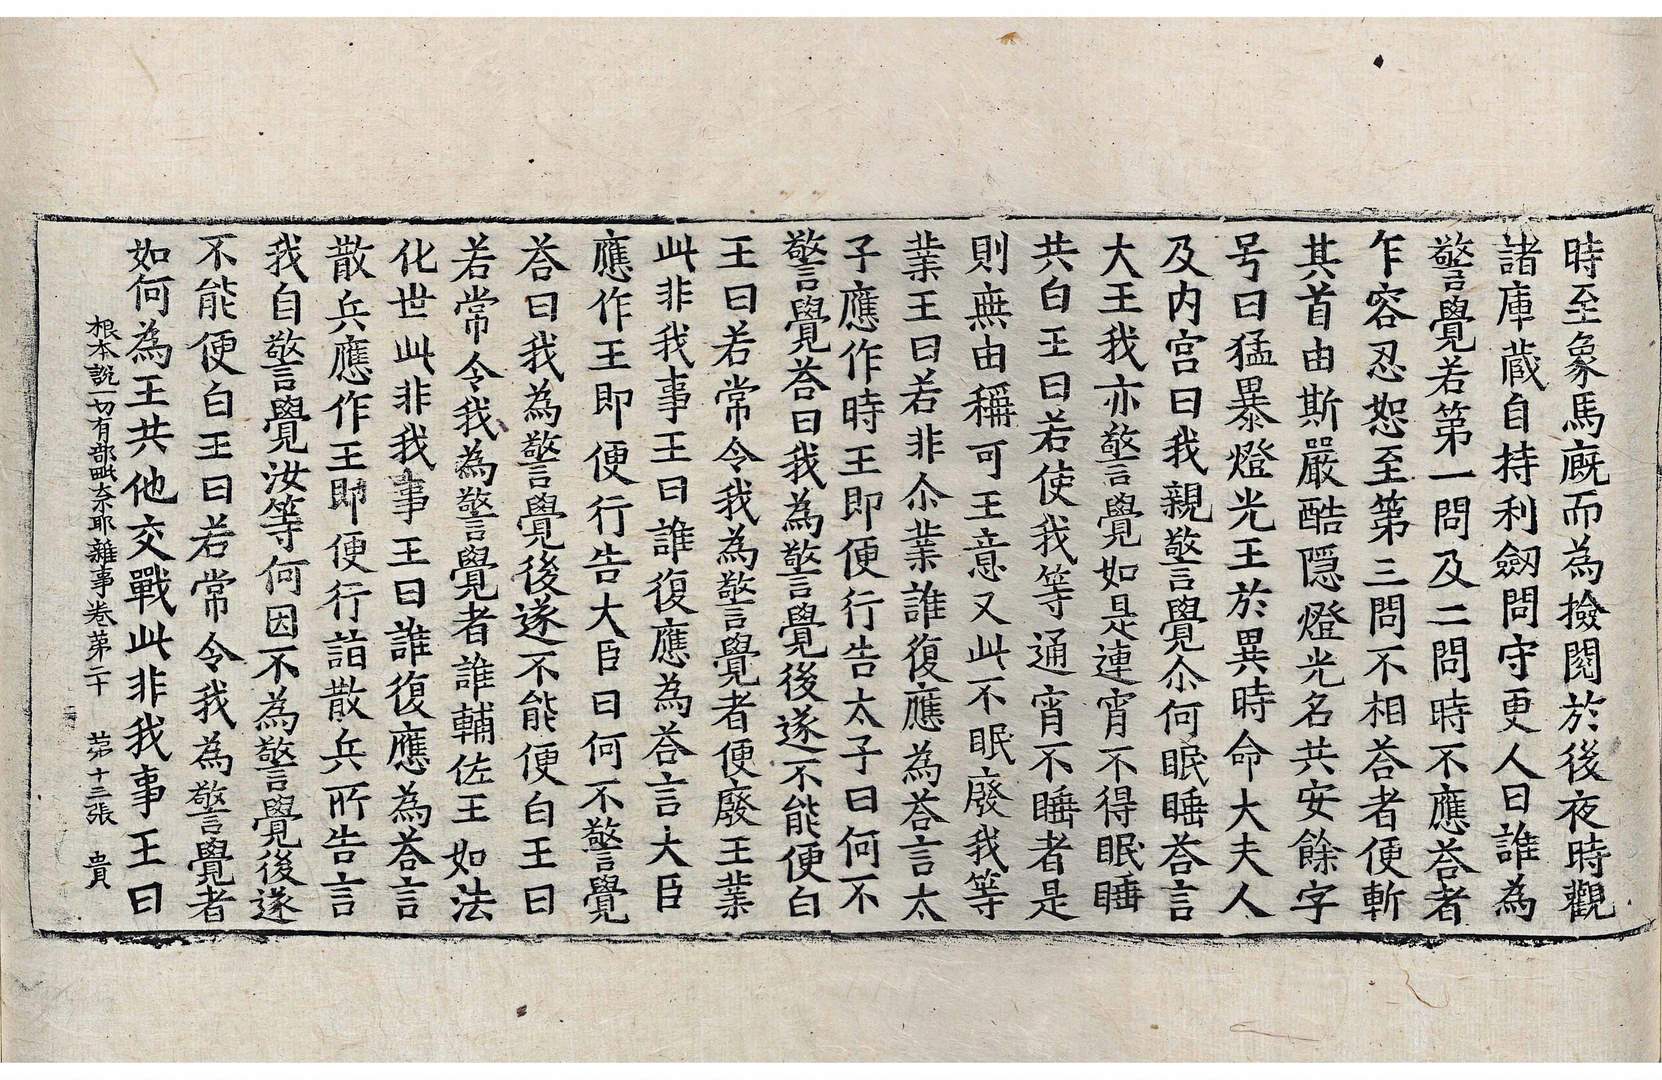 時至象馬廐而為撿閱於後夜時觀
諸庫藏自持利劒問守更人曰誰為
警覺若第一問及二問時不應荅者
乍容忍恕至第三問不相荅者便斬
其首由斯嚴酷隱燈光名共安餘字
号曰猛暴燈光王於異時命大夫人
及内宫曰我親警覺尒何眠睡荅言
大王我亦警覺如是連宵不得眠睡
共白王曰若使我等通宵不睡者是
則無由稱可王意又此不眠廢我等
業王曰若非尒業誰復應為荅言太
子應作時王即便行告太子曰何不
警覺荅曰我為警覺後遂不能便白
王曰若常令我為警覺者便廢王業
此非我事王曰誰復應為荅言大臣
應作王即便行告大臣曰何不警覺
荅曰我為警覺後遂不能便白王曰
若常令我為警覺者誰輔佐王如法
化世此非我事王曰誰復應為荅言
散兵應作王即便行詣散兵所告言
我自警覺汝等何因不為警覺後遂
不能便白王曰若常令我為警覺者
如何為王共他交戰此非我事王曰
根本說一切有部毗奈耶雜事卷第二十 第十三張 貴